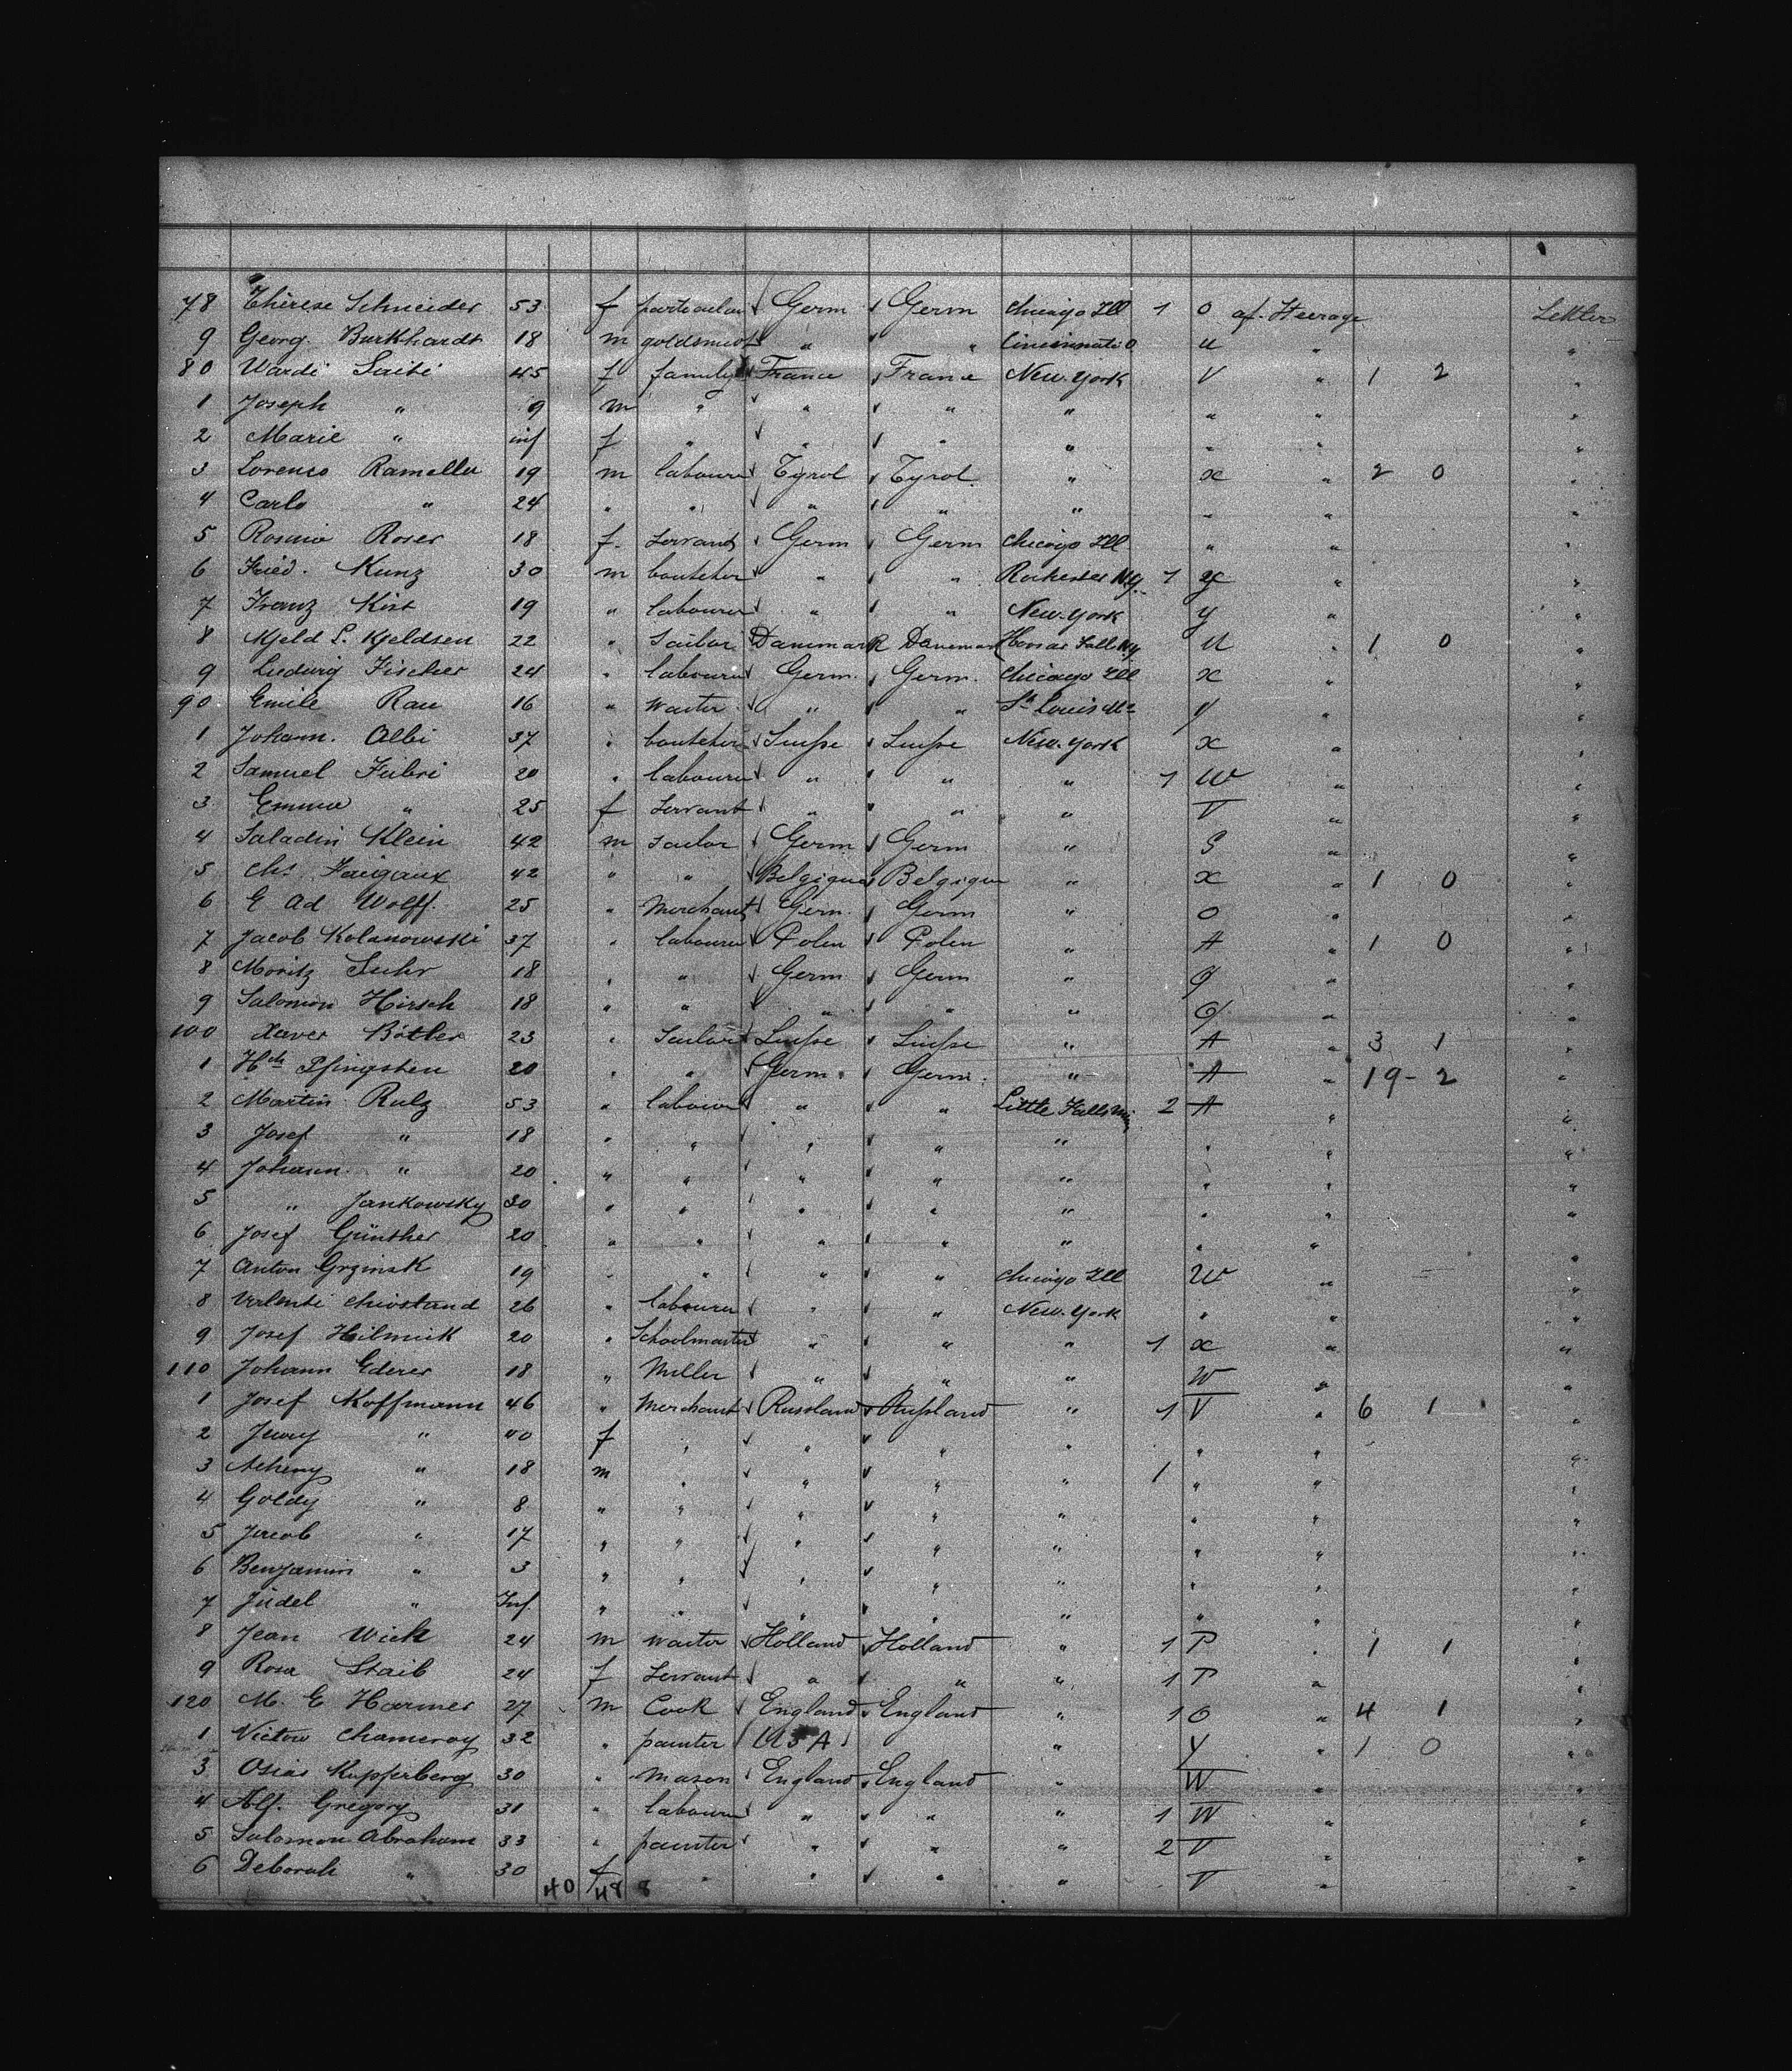 78 Thérese Schneider 53 f particular Germ Germ Chicago Ill 1 O af. Steerage
9 Georg. Burkhardt 18 m " " Cincinnati O U " "
80 Wardi Saibi 45 f family France France New-York V " 1 2 "
1 Joseph " 9 m " " " " " " "
2 Marie " inf f " " " " " " "
3 Lorenso Ramella 19 m labourer Tyrol Tyrol " x " 2 0 "
4 Carlo " 24 " " " " " " " "
5 Rosina Roser 18 f. Servant Germ Germ Chicago Ill " " "
6 Fried. Kunz 30 m " " Rochester NY. 1 " "
7 Franz Kist 19 " labourer " " New-York y " "
8 Kjeld P. Kjeldsen 22 " Sailor Danemark Danemark Falls NY U " 1 0 "
9 Ludwig Fischer 24 " labourer Germ. Germ. Chicago Ill x " "
90 Emile Rau 16 " Waiter " " St Louis Mo y " "
1 Johann. Albi 37 " Suisse Suisse New-York x " "
2 Samuel Fubri 20 " labourer " " " 1 W " "
3 Emma " 25 f Servant " " " V " "
4 Saladin Klein 42 m Sailor Germ Germ " S " "
5 Chs Faigaux 42 " " Belgique Belgique " x " 1 0 "
6 E Ad Wolff. 25 " Merchant Germ. Germ " O " "
7 Jacob Kolanowski 37 " labourer Polen Polen " A " 1 0 "
8 Moritz Suhr 18 " " Germ Germ " " "
9 Salomon Hirsch 18 " " " " " " "
100 Xaver Bötler 23 " Sailor Suisse Suisse " A " 3 1 "
1 Hch Pfingsten 20 " " Germ. Germ. " A " 19-2 "
2 Martin Rulz 53 " labour " " Little Falls 2 A " "
3 Josef " 18 " " " " " " " "
4 Johann " 20 " " " " " " " "
5 " Jankowsky 30 " " " " " " " "
6 Josef Günther 20 " " " " " " " "
7 Anton Grzinsk 19 " " " " Chicago Ill W " "
8 Valenti Chiostand 26 " labourer " " New-York " " "
9 Josef Hilmick 20 " Schoolmaster " " " 1 x " "
110 Johann Ederer 18 " Miller " " " W " "
1 Josef Koffmann 46 " Merchant Russland Russland " 1 V " 6 1 "
2 Jenny " 40 f " " " " " " "
3 " 18 m " " " " 1 " " "
4 Goldy " 8 " " " " " " " "
5 Jacob " 17 " " " " " " " "
6 Benjamin " 3 " " " " " " " "
7 Judel " Inf. " " " " " " " "
8 Jean Wick 24 m Waiter Holland Holland " 1 P " 1 1 "
9 Rosa Staib 24 f Servant " " " 1 P " "
120 M. E Harmer 27 m Cook England England " 1 O " 4 1 "
1 Victor Chameroy 32 " painter USA " y " 1 0 "
3 Osias Kupferberg 30 " Mason England England " W " "
4 Alf. Gregory 31 " labourer " " " 1 W " "
5 Salomon Abraham 33 " painter " " " 2 V " "
6 Deborah " 30 f " " " " V " "
40 48 8